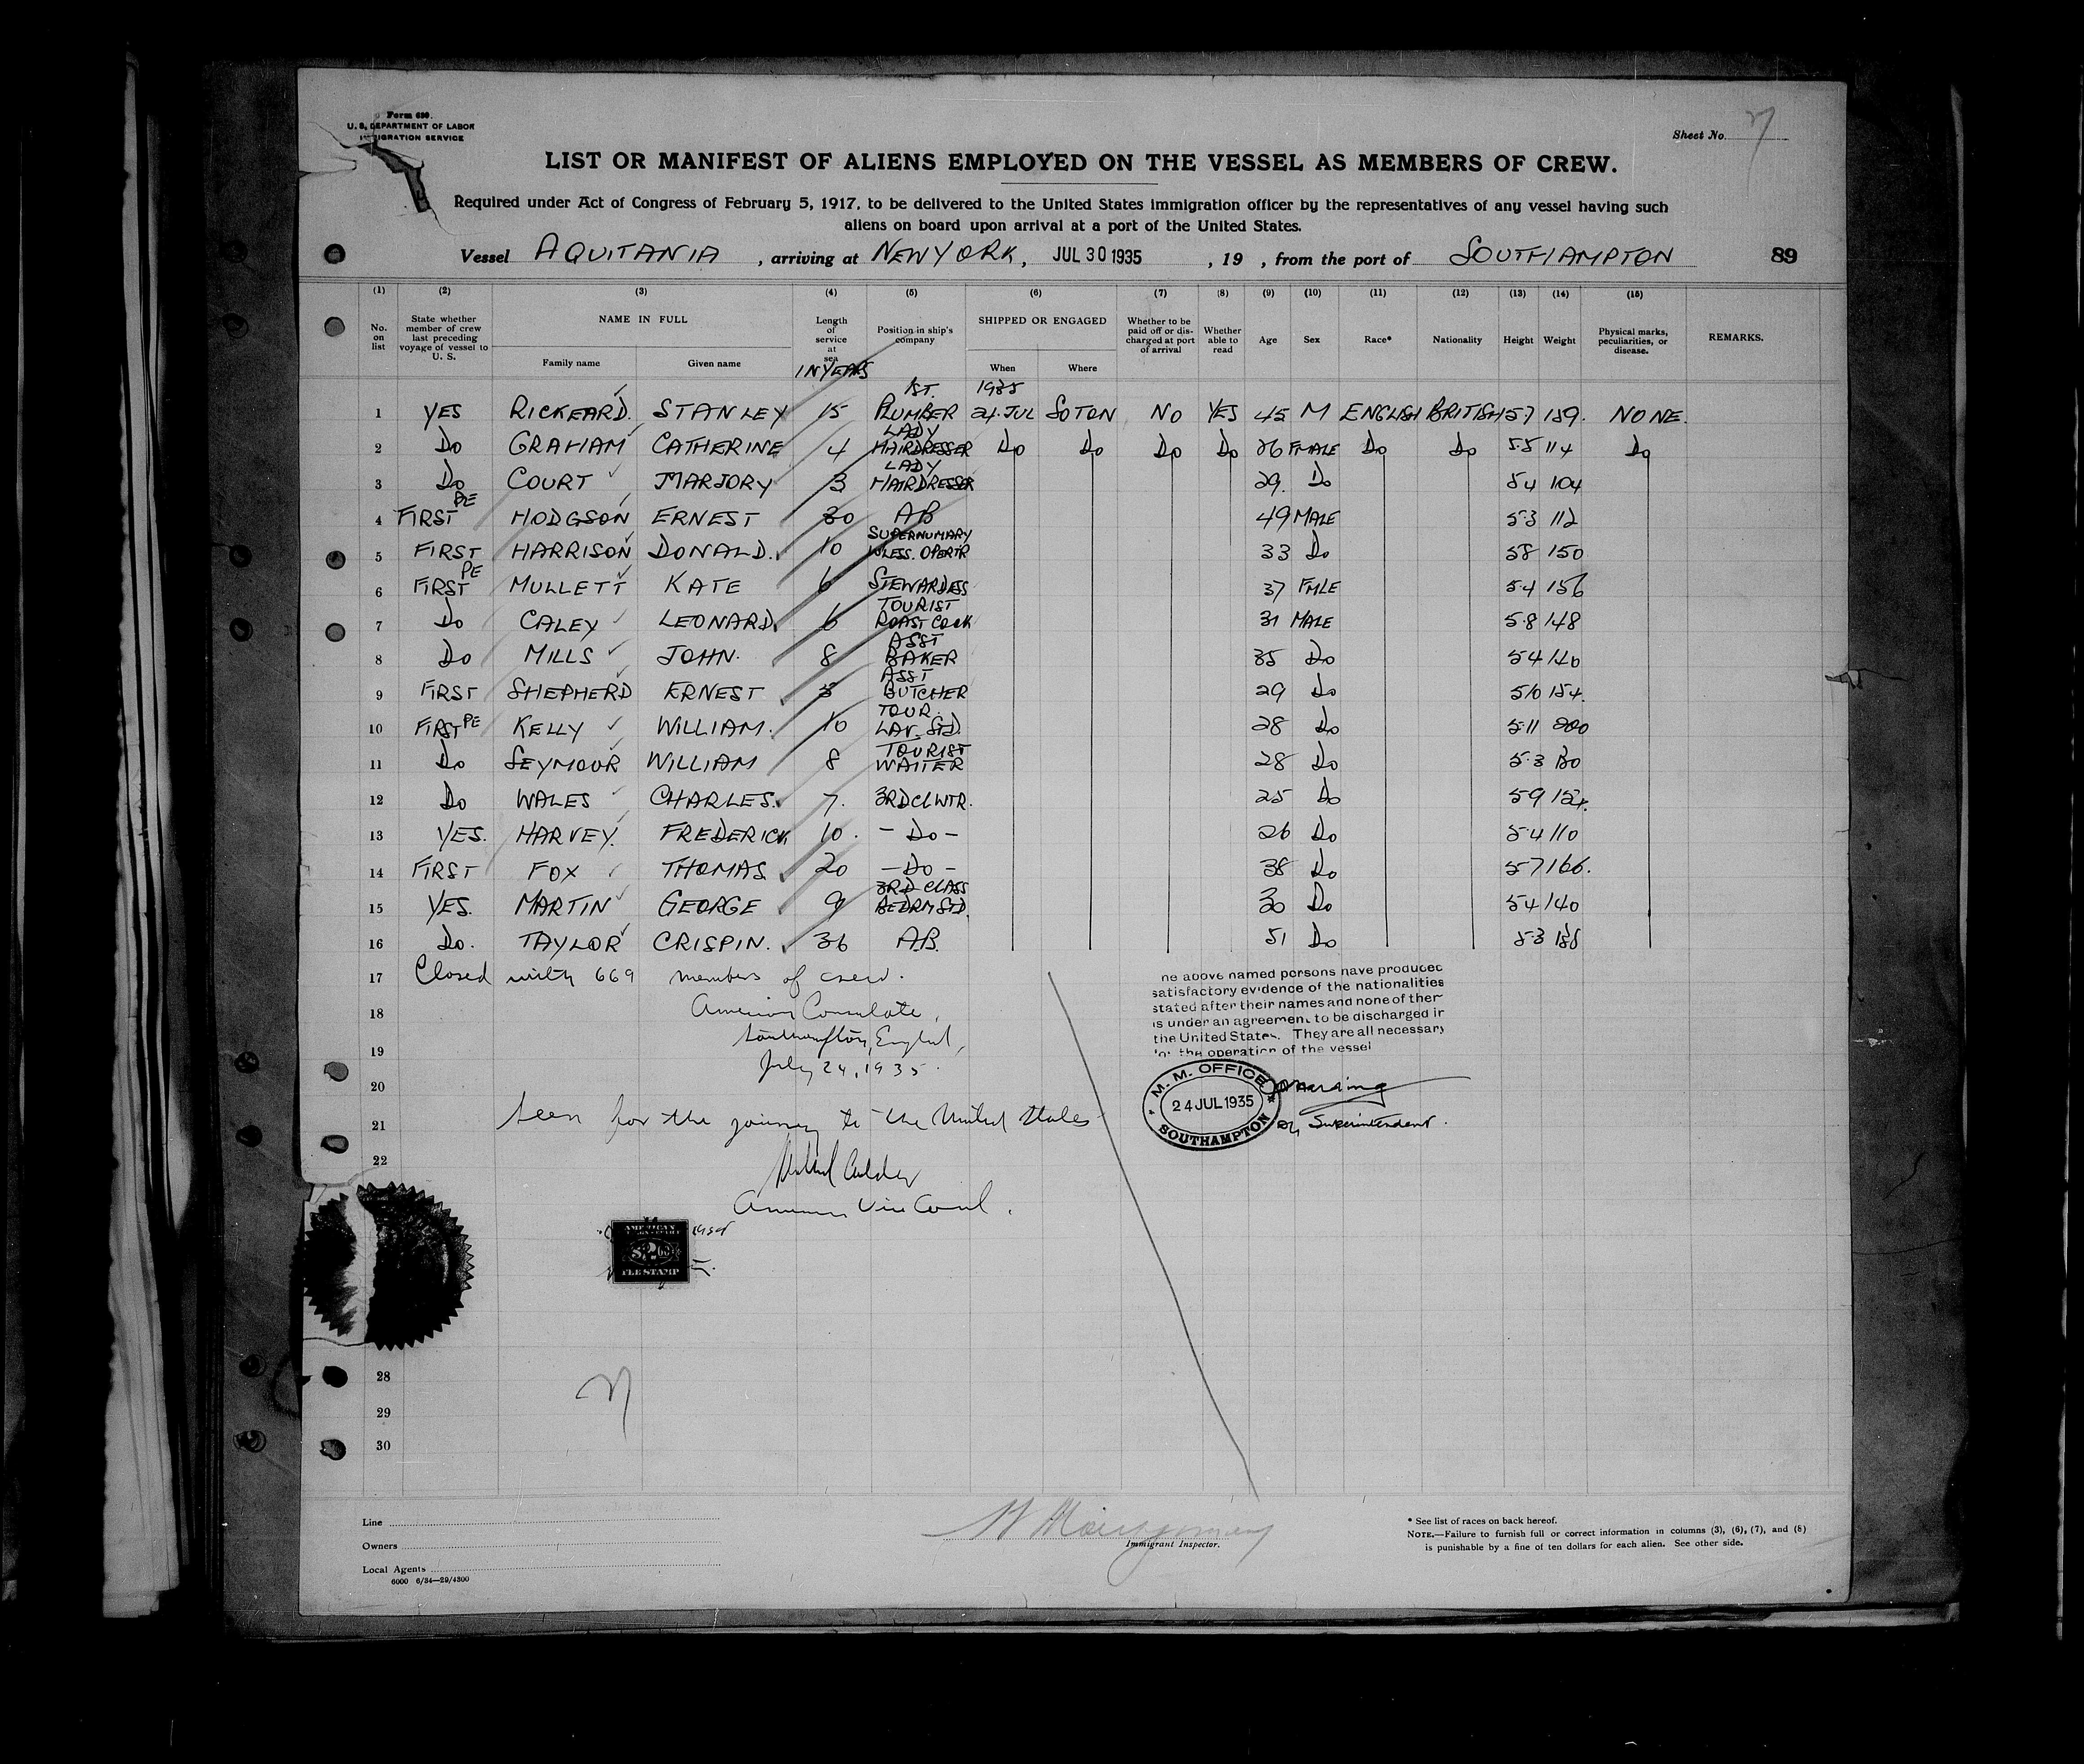 Form 680.
U. S. DEPARTMENT OF LABOR
IMMIGRATION SERVICE
Sheet No. 7
LIST OR MANIFEST OF ALIENS EMPLOYED ON THE VESSEL AS MEMBERS OF CREW.
Required under Act of Congress of February 5, 1917, to be delivered to the United States immigration officer by the representatives of any vessel having such
aliens on board upon arrival at a port of the United States.
Vessel AQUITANIA , arriving at NEW YORK, JUL 30 1935 , 19 , from the port of SOUTHAMPTON 89
(1) (2) (3) (4) (5) (6) (7) (8) (9) (10) (11) (12) (13) (14) (15)
No. on list State whether member of crew last preceding voyage of vessel to U. S. NAME IN FULL Family name Given name Length of service at sea IN YEARS Position in ship's company SHIPPED OR ENGAGED When Where Whether to be paid off or discharged at port of arrival Whether able to read Age Sex Race* Nationality Height Weight Physical marks, peculiarities, or disease. REMARKS.
1 YES RICKEARD. STANLEY 15 1ST. PLUMBER 1935 24. JUL SOTON NO YES 45 M ENGLISH BRITISH 5.7 159. NONE.
2 Do GRAHAM CATHERINE 4 LADY HAIRDRESSER Do Do Do Do 26 FMALE Do Do 5.5 114 Do
3 Do COURT MARJORY 3 LADY HAIRDRESSER 29. Do 5.4 104
4 FIRST PE HODGSON ERNEST 30 AB 49 MALE 5.3 112
5 FIRST HARRISON DONALD. 10 SUPERNUMARY WLESS. OPERTR 33 Do 5.8 150
6 FIRST PE MULLETT KATE 6 STEWARDESS 37 FMLE 5.4 156
7 Do CALEY LEONARD. 6 TOURIST ROAST COOK 31 MALE 5.8 148
8 Do MILLS JOHN. 8 ASST BAKER 35 Do 5.4 140
9 FIRST SHEPHERD ERNEST ASST BUTCHER 29 Do 5.10 154.
10 FIRST PE KELLY WILLIAM. 10 TOUR. LAV. STD. 28 Do 5.11 200
11 Do SEYMOUR WILLIAM 8 TOURIST WAITER 28 Do 5.3 130
12 Do WALES CHARLES. 7. 3RD Cl WTR. 25 Do 5.9 154.
13 YES. HARVEY. FREDERICK 10. - Do - 26 Do 5.4 110
14 FIRST FOX THOMAS. 20 - Do - 38 Do 5.7 166.
15 YES. MARTIN GEORGE 9 3RD CLASS BEDRM STD. 30 Do 5.4 140
16 Do. TAYLOR CRISPIN. 36 A.B. 51 Do 5.3
17 Closed with 669 members of crew.
18 American Consulate,
Southampton, England,
19
July 24, 1935.
20
21 Seen for the journey to the United States
22
American Vice Consul.
he above named persons have produced
satisfactory evidence of the nationalities
stated after their names and none of ther
is under an agreement to be discharged in
the United States. They are all necessary
for the operation of the vessel
M. M. OFFICE
24 JUL 1935
SOUTHAMPTON
Superintendent.
AMERICAN
FEE STAMP
7
28
29
30
Line
Owners
Local Agents
6000 6/34—29/4300
Immigrant Inspector.
* See list of races on back hereof.
NOTE.—Failure to furnish full or correct information in columns (3), (6), (7), and (8)
is punishable by a fine of ten dollars for each alien. See other side.